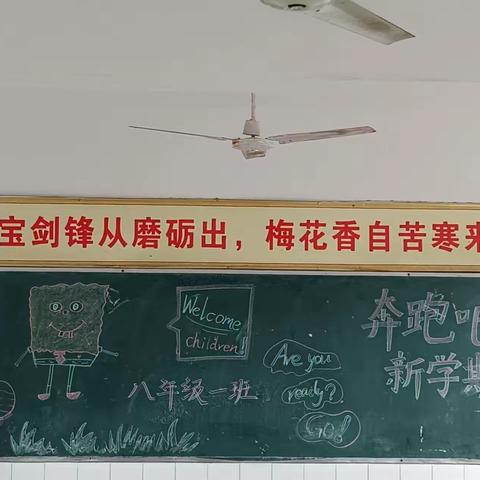 宝剑锋从磨砺出，梅花香自苦寒来
Welcome
children!
八年级一班
Are you
ready?
Go!
奔跑吧
新学期